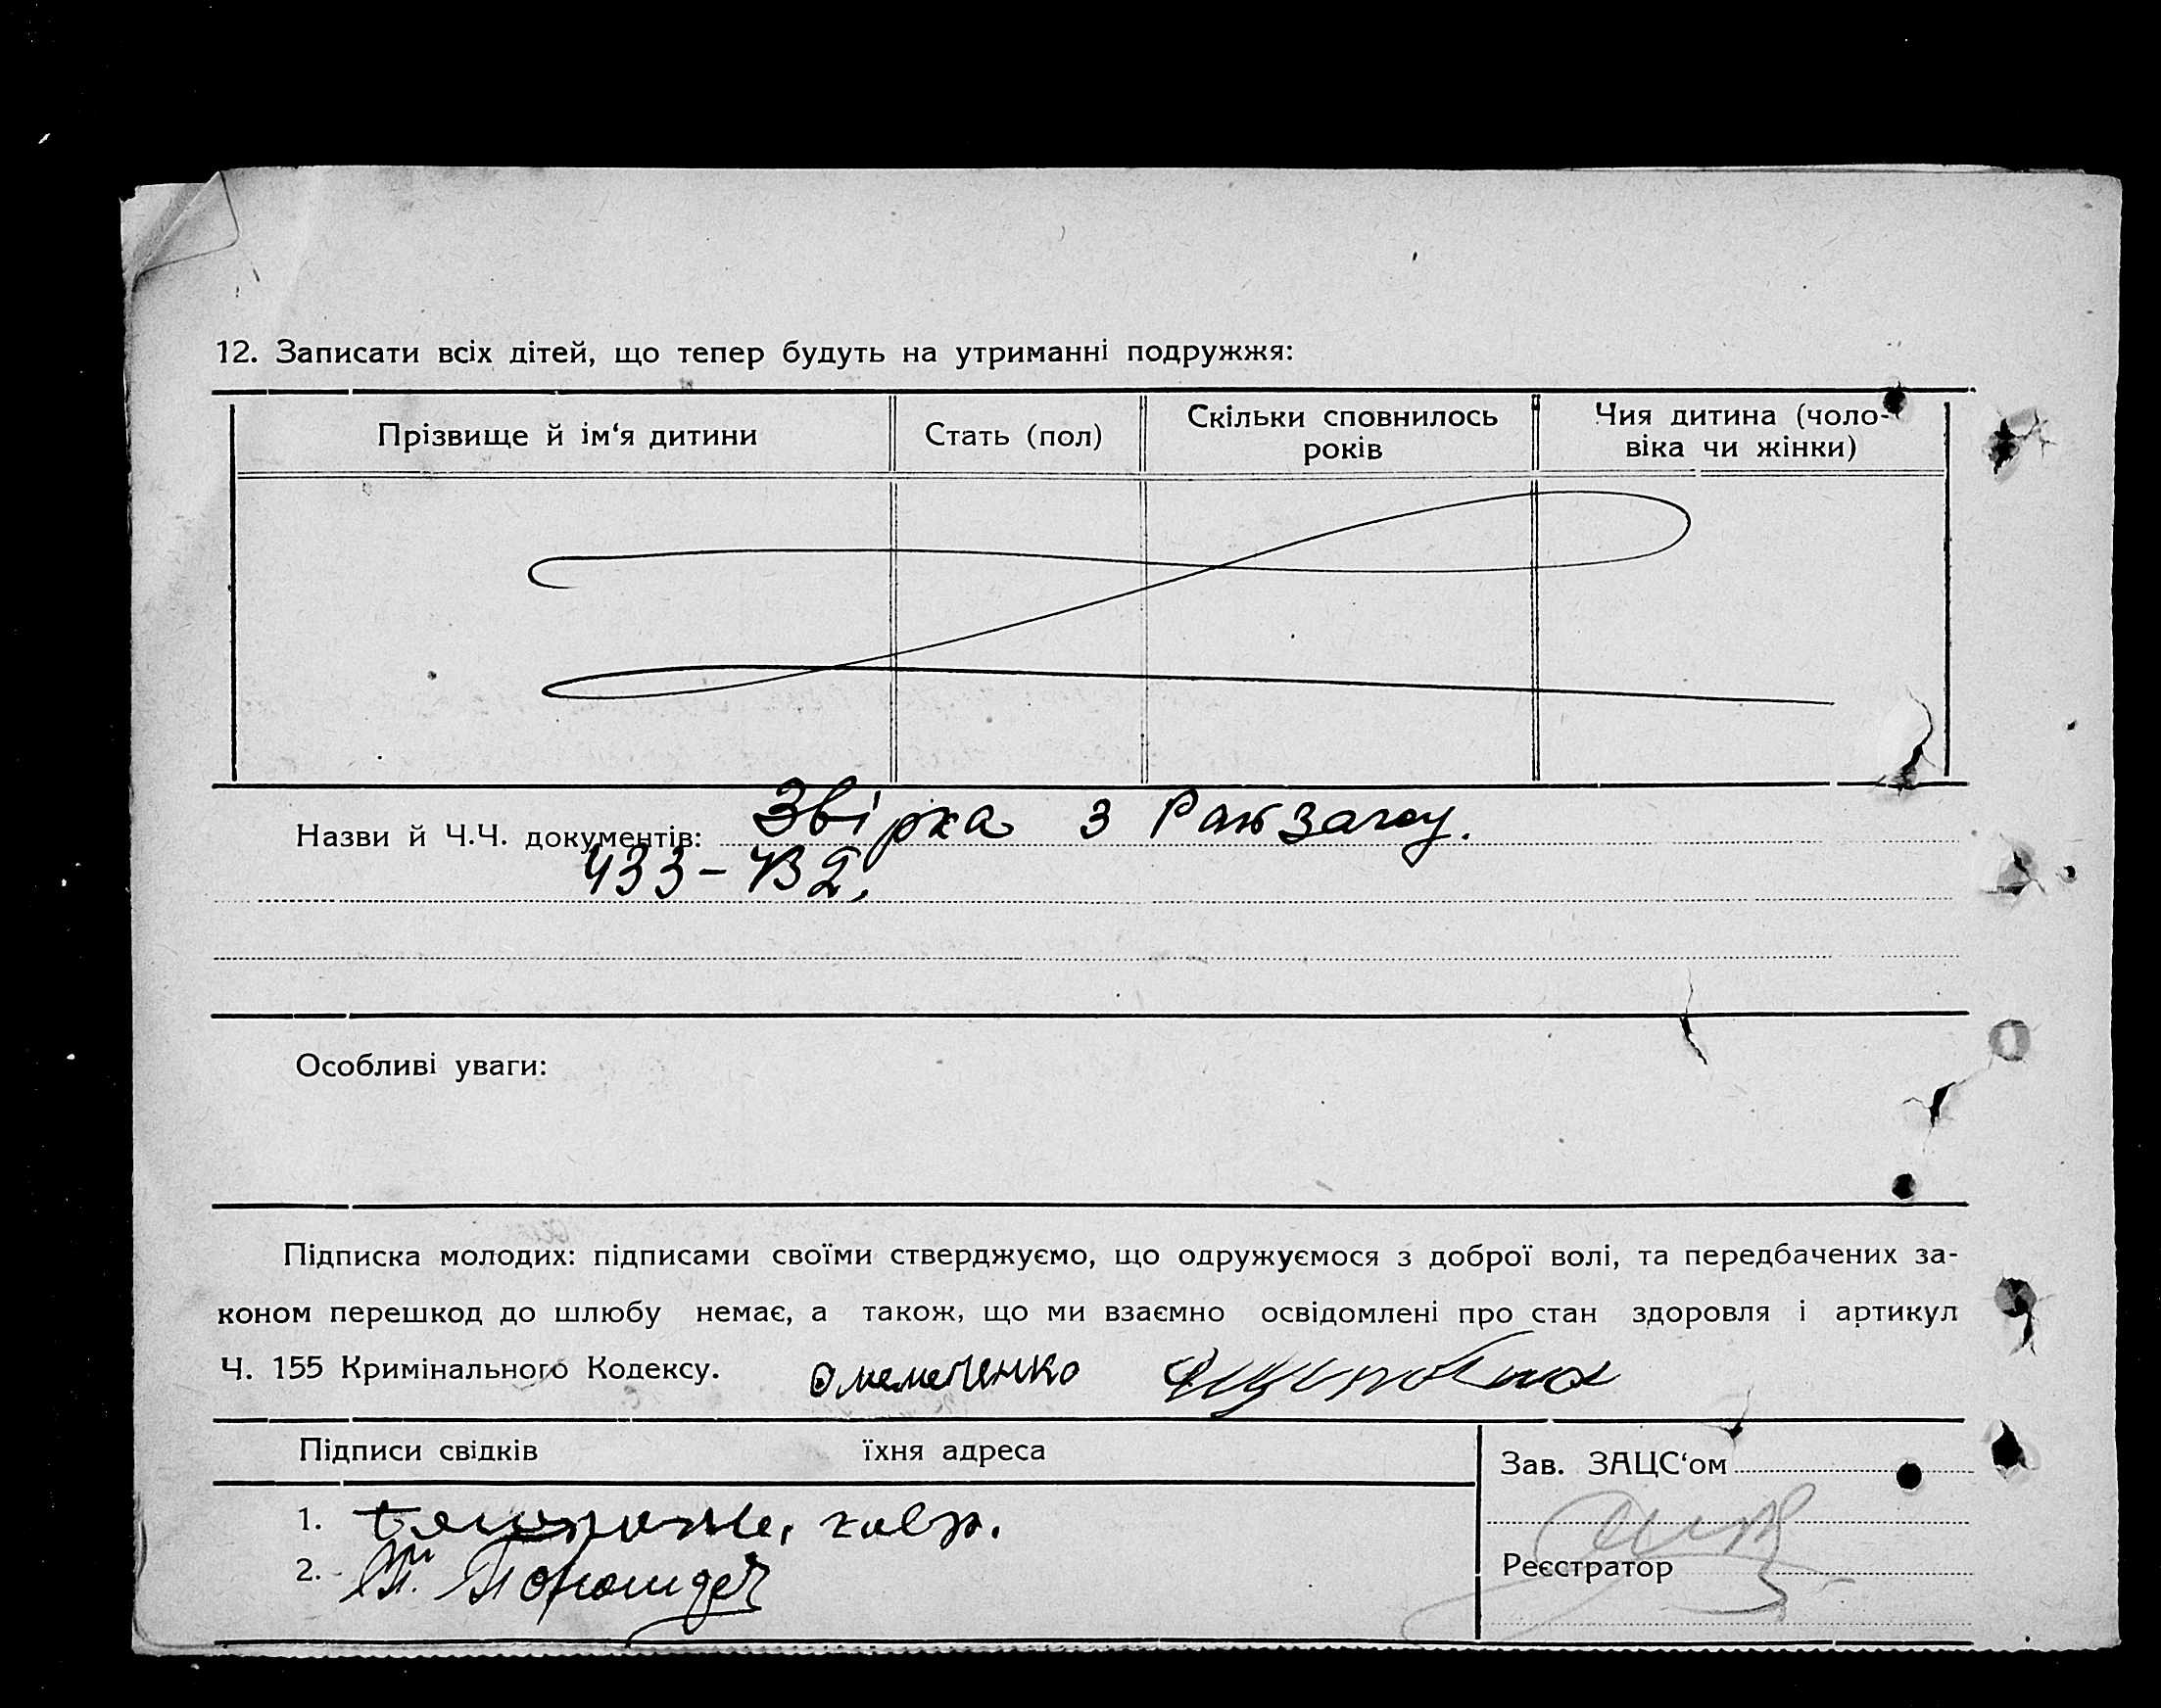 12. Записати всіх дітей, що тепер будуть на утриманні подружжя:
Прізвище й ім‘я дитини
Стать (пол)
Скільки сповнилось
років
Чия дитина (чоло-
віка чи жінки)
Назви й Ч.Ч. документів: Звірка з
433-
Особливі уваги:
Підписка молодих: підписами своїми стверджуємо, що одружуємося з доброї волі, та передбачених за-
коном перешкод до шлюбу немає, а також, що ми взаємно освідомлені про стан здоровля і артикул
Ч. 155 Кримінального Кодексу.
Підписи свідків їхня адреса
Зав. ЗАЦС‘ом
1.
2.
Реєстратор